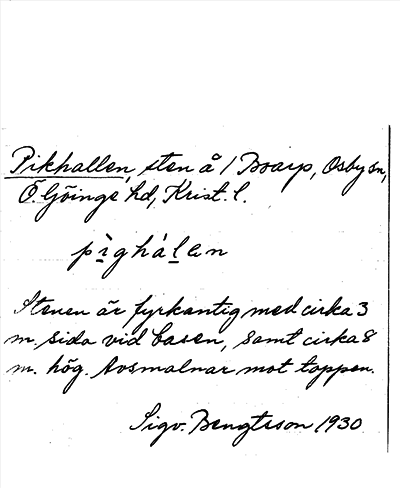 Pikhallen, sten å 1 Boarp, Osby sn,
Ö. Göinge hd, Krist. l.
pìghálan
Stenen är fyrkantig med cirka 3
m. sida vid basen, samt cirka 8
m. hög. Avsmalnar mot toppen.
Sigv. Bengtsson 1930